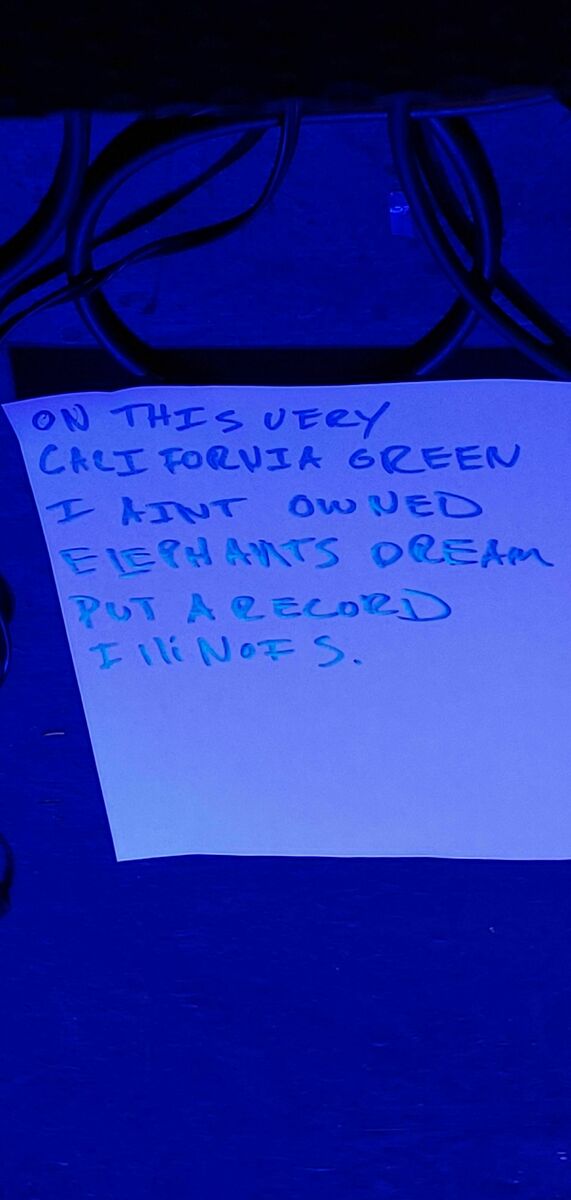 ON THIS VERY
CALIFORNIA GREEN
I AINT OWNED
ELEPHANTS DREAM
PUT A RECORD
IlliNOIS.